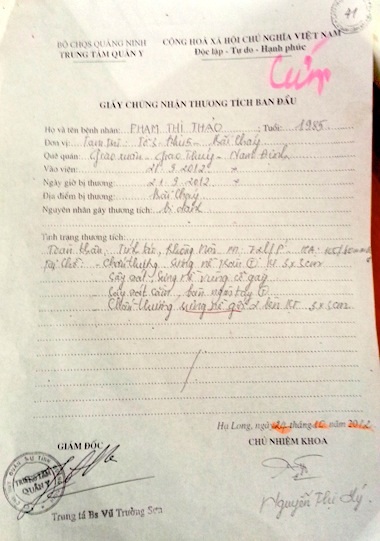 71
BỘ CHQS QUẢNG NINH
TRUNG TÂM QUÂN Y
CỘNG HOÀ XÃ HỘI CHỦ NGHĨA VIỆT NAM
Độc lập - Tự do - Hạnh phúc
GIẤY CHỨNG NHẬN THƯƠNG TÍCH BAN ĐẦU
Họ và tên bệnh nhân: PHẠM THỊ THẢO Tuổi: 1985
Đơn vị: Tạm trú - Tổ 3 - Bãi Cháy
Quê quán: Giao xuân - Giao Thủy - Nam Định
Vào viện: 21-9-2012
Ngày giờ bị thương: 21-9-2012
Địa điểm bị thương: Bãi Cháy
Nguyên nhân gây thương tích: bị đánh
Tình trạng thương tích:
Toàn thân: Tỉnh táo, không nôn, M: 72l/p. HA:
Tại chỗ: - Chấn thương sưng nề KT 3x3cm
Sây sát, sưng nề vùng cổ gáy
Sây sát cằm, bàn ngón tay
Chấn thương sưng nề gối 2 bên KT 3x3cm
Hạ Long, ngày tháng 10 năm 2012
GIÁM ĐỐC
CHỦ NHIỆM KHOA
TRUNG TÂM
QUÂN Y
Trung tá Bs Vũ Trường Sơn
Nguyễn Thị Lý